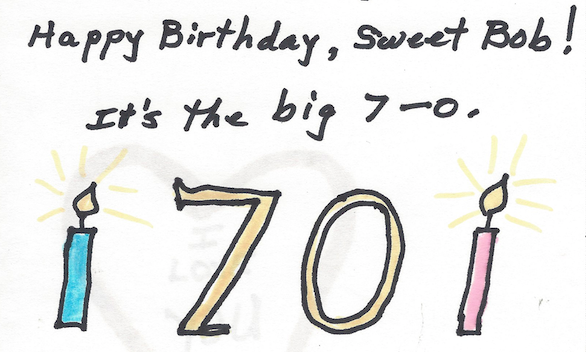 Happy Birthday, Sweet Bob!
It's the big 7-0.
70